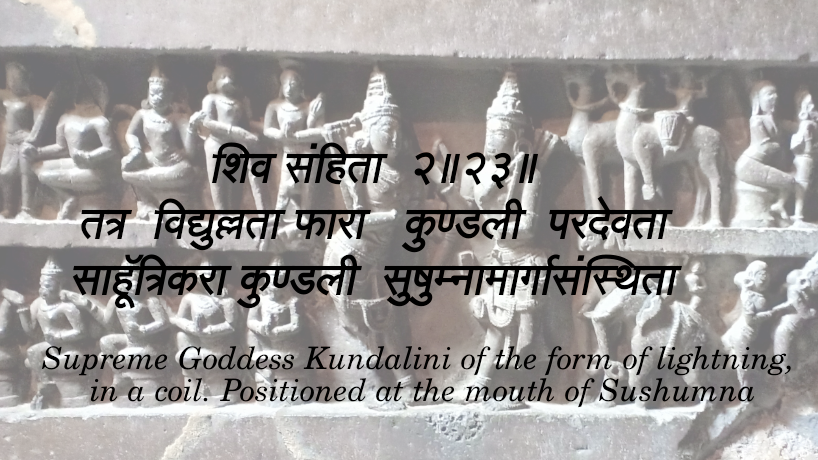 शिव संहिता २॥२३॥
तत्र विद्युल्लता फारा कुण्डली परदेवता
साहूॅत्रिकरा कुण्डली सुषुम्नामार्गासंस्थिता
Supreme Goddess Kundalini of the form of lightning,
in a coil. Positioned at the mouth of Sushumna